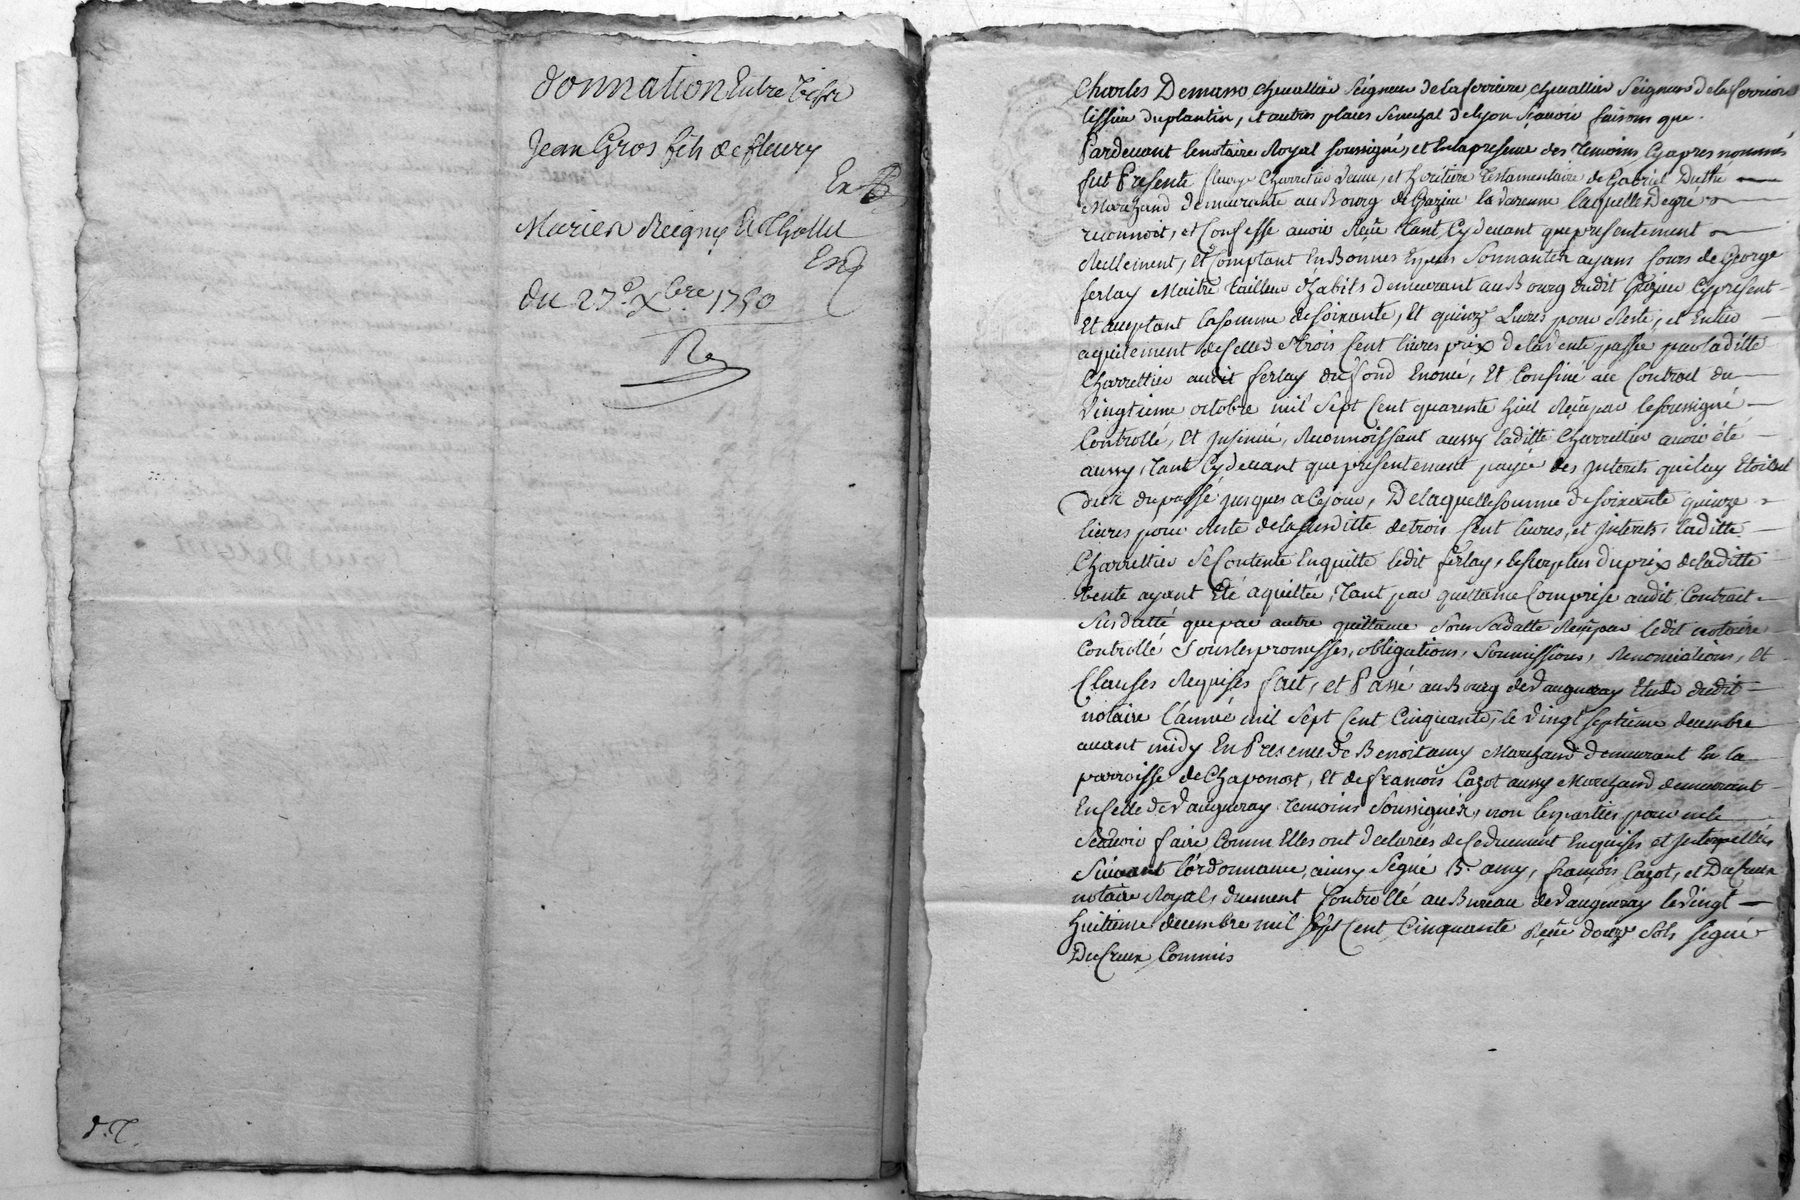 Donnation Entre vifs
Jean Gros fils de fleury
En
Marie Reigny Et Thollet
du 27e. Xbre. 1750
d.T.
Charles Demasso chevallier Seigneur de la ferriere, chevallier Seigneur de la ferriere
lissieu duplantin, et autres places Senechal de lyon Scavoir faisons que.
Pardevant lenotaire Royal soussigné, et Enlapresence des temoins Cyapres nommés
fut Presente fleurye Charrettier veuve, et heritiere Testamentaire de Gabriel
Marchand demeurante au Bourg de Grezieu la varenne laquelle degré
reconnoit, et Confesse avoir Reçue tant Cydevant que presentement
Reellement, et Comptant En Bonnes Especes Sonnantes ayans Cours de George
ferlay Maitre tailleur d'habits Demeurant au Bourg dudit Grezieu Cypresent
Et aceptant la somme de soixante, Et quinze Livres pour Reste, et Entier
aquitement de Celle de trois Cent livres prix de la vente passée par laditte
Charrettier audit ferlay du fond Enoncé, Et Confiné au Contrat du
vingtieme octobre mil Sept Cent quarente huit Reçu par le soussigné
Controllé, Et Insinué, Reconnoissant aussy laditte Charrettier avoir été
aussy, tant Cydevant que presentement payée des Interets qui luy Etoient
dux du passé jusques a Cejour, De laquelle somme de soixante quinze
livres pour Reste de la susditte de trois Cent livres, et Interets, laditte
Charrettier Se Contente En quitte ledit ferlay, le surplus du prix de laditte
vente ayant Eté aquittée, tant par quittance Comprise audit Contract
Susdatté que par autre quittance Sous sa datte Reçu par ledit notaire
Controllé Sous les promesses, obligations, Soumissions, Renonciations, Et
Clauses Requises fait, et Passé au Bourg de Vaugneray Etude dudit
notaire l'année mil Sept Cent Cinquante, le vingt Septieme decembre
avant midy En Presence de Benoit amy Marchand demeurant En la
parroisse de Chaponost, Et de françois Cazot aussy Marchand demeurant
En Celle de Vaugneray temoins Soussignez, non les parties pour ne le
Scavoir faire Comm Elles ont declarées de Ce duement Enquises et Interpellées
Suivant l'ordonnance, ainsy Signé B. amy, françois Cazot, et DuCreux
notaire Royal, duement Controllé au Bureau de Vaugneray le vingt
huitieme decembre mil Sept Cent Cinquante Reçu douze Sols Signé
DuCreux Commis